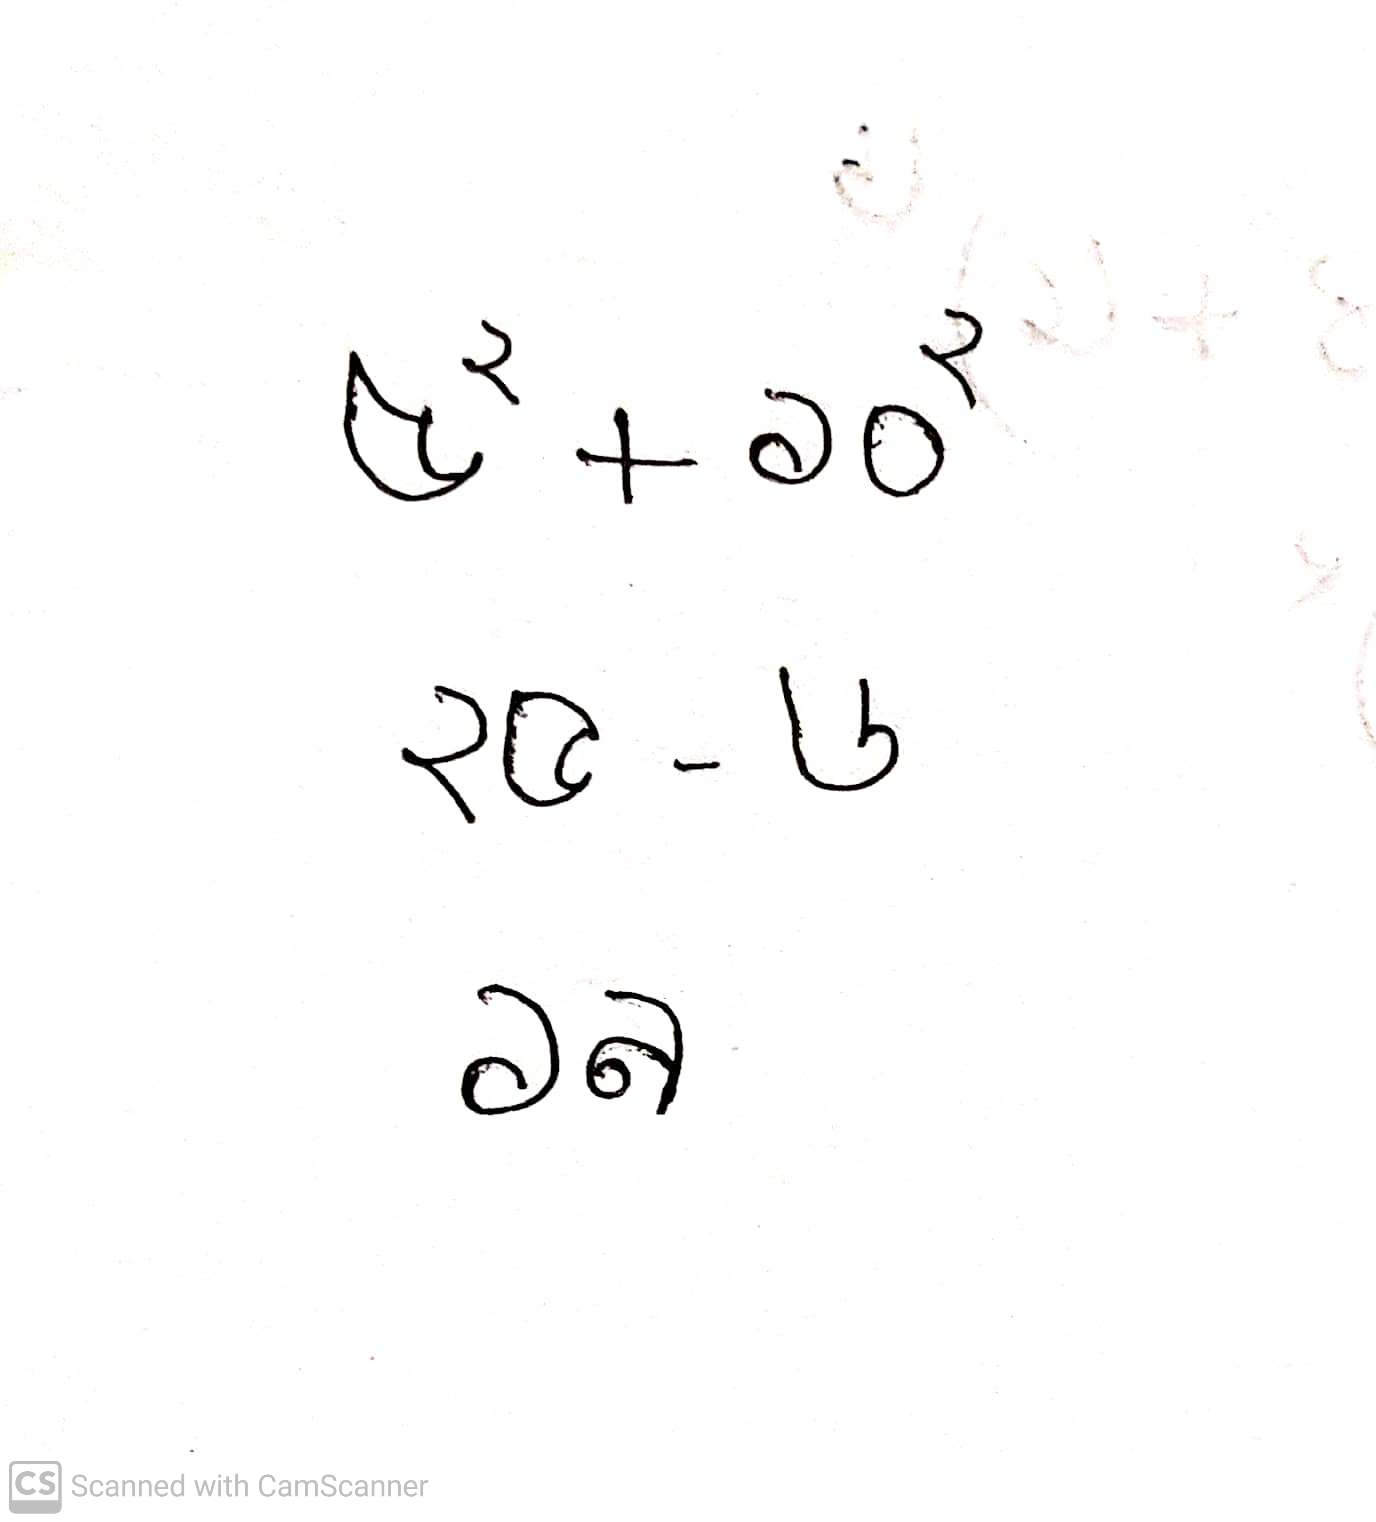 ৫² + ১০²
২৫ - ৬
১৯
CS Scanned with CamScanner